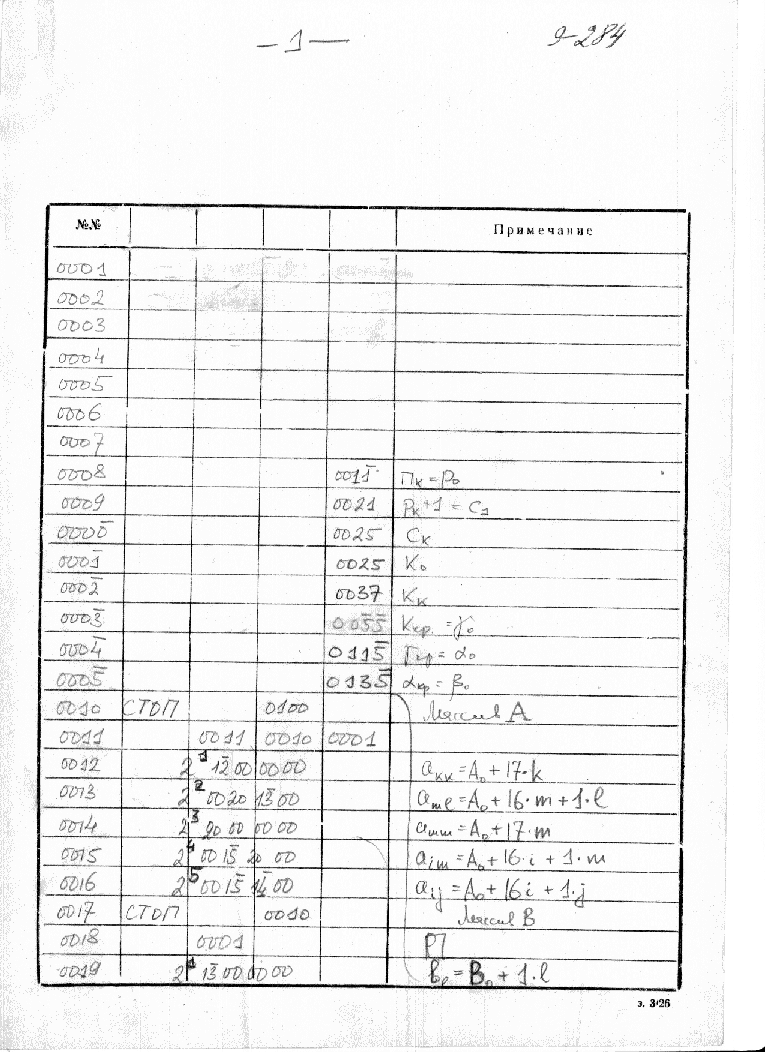 — 1 —
9-284
№№ Примечание
0001
0002
0003
0004
0005
0006
0007
0008 001̄1̄ Пк = р₀
0009 0021 Рк+1 = С₁
000̄0̄ 0025 Ск
0001̄ 0025 К₀
0002̄ 0037 Кк
0003̄ 005̄5̄ Кгр. = γ₀
0004̄ 0115̄ Ггр = α₀
0005̄ 0135̄ αгр = β₀
0010 СТОП 0100 Массив А
0011 0011 0010 0001
0012 2 1 1̄2̄ 00 00 00 aкк = A₀ + 17·k
0013 2 2 00 20 1̄3̄ 00 aml = A₀ + 16·m + 1·l
0014 2 3 20 00 00 00 amm = A₀ + 17·m
0015 2 4 00 15̄ 20 00 aim = A₀ + 16·i + 1·m
0016 2 5 00 15̄ 1̄4̄ 00 aij = A₀ + 16i + 1·j
0017 СТОП 0010 Массив В
0018 0001 РП
0019 2 1 1̄3̄ 00 00 00 bl = B₀ + 1·l
з. 3426